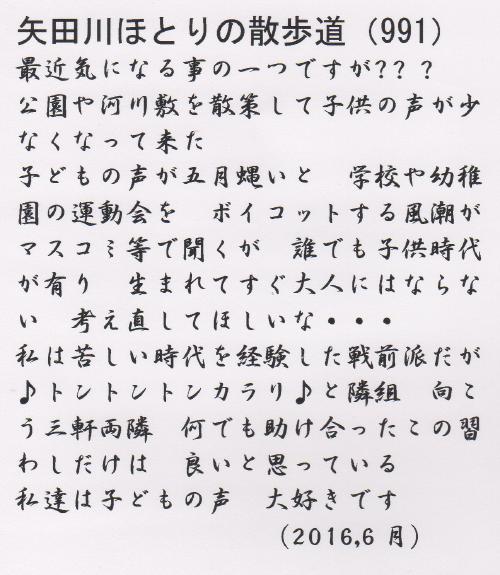 矢田川ほとりの散歩道（991）
最近気になる事の一つですが？？？
公園や河川敷を散策して子供の声が少
なくなって来た
子どもの声が五月蝿いと　学校や幼稚
園の運動会を　ボイコットする風潮が
マスコミ等で聞くが　誰でも子供時代
が有り　生まれてすぐ大人にはならな
い　考え直してほしいな・・・
私は苦しい時代を経験した戦前派だが
♪トントントンカラリ♪と隣組　向こ
う三軒両隣　何でも助け合ったこの習
わしだけは　良いと思っている
私達は子どもの声　大好きです
（2016,6月）